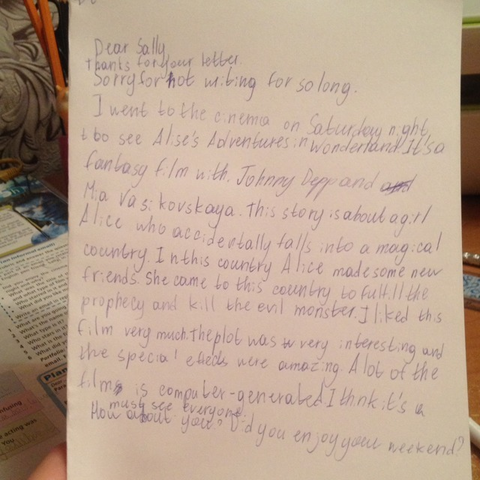 Dear Sally,
thanks for your letter.
Sorry for not writing for so long.
I went to the cinema on Saturday night,
to see Alise's Adventures in Wonderland. It's a
fantasy film with Johnny Depp and
Mia Vasikovskaya. This story is about a girl
Alice who accidentally falls into a magical
country. In this country Alice made some new
friends. She came to this country to fulfill the
prophecy and kill the evil monster. I liked this
film very much. The plot was very interesting and
the special effects were amazing. A lot of the
film is computer-generated. I think it's a
must see everyone.
How about you? Did you enjoy your weekend?